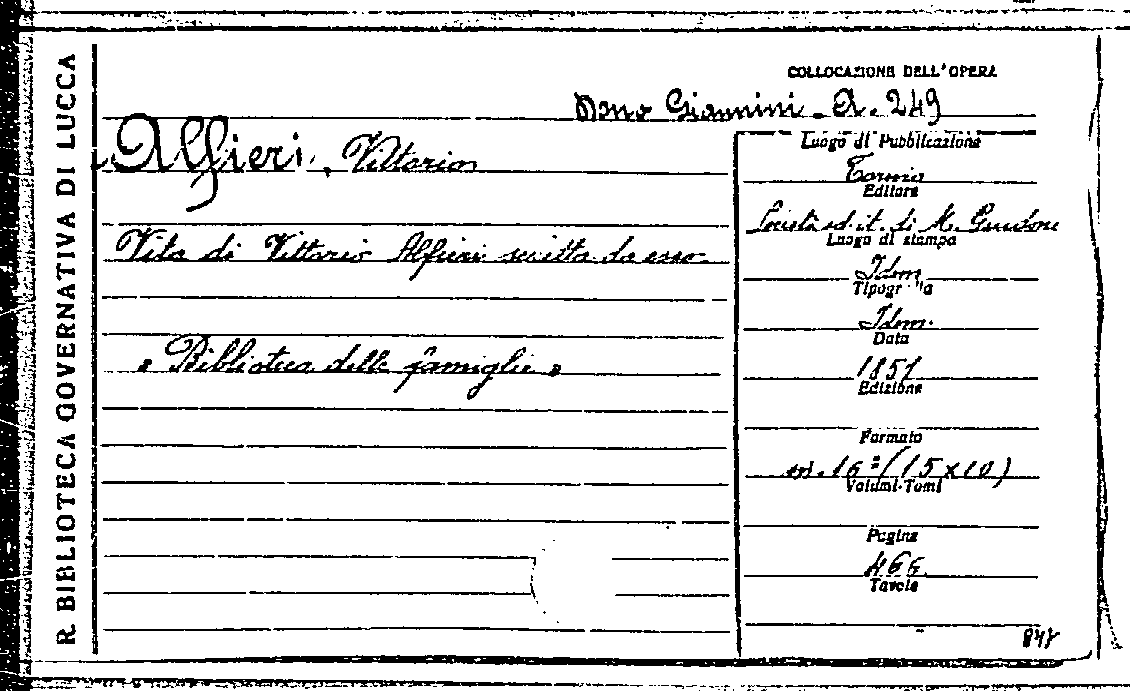 R. BIBLIOTECA GOVERNATIVA DI LUCCA
COLLOCAZIONE DELL'OPERA
Dono Giannini - A. 249
Alfieri, Vittorio
Vita di Vittorio Alfieri scritta da esso
« Biblioteca delle famiglie »
Luogo di Pubblicazione
Torino
Editore
Società ed. it. di M. Guidoni
Luogo di stampa
Idem
Tipografia
Idem.
Data
1851
Edizione
Formato
in. 16° (15x10)
Volumi-Tomi
Pagine
466
Tavole
848